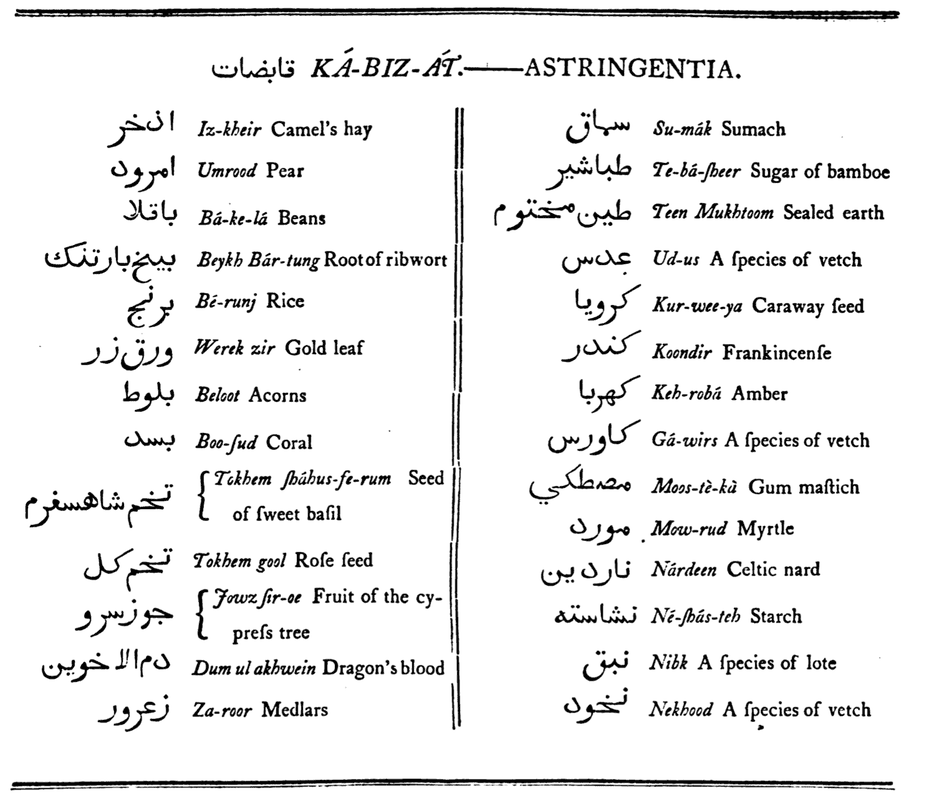 قابضات KÁ-BIZ-ÁT.——ASTRINGENTIA.
اذخر Iz-kheir Camel's hay
امرود Umrood Pear
باقلا Bá-ke-lá Beans
بيخ بارتنك Beykh Bár-tung Root of ribwort
برنج Bé-runj Rice
ورق زر Werek zir Gold leaf
بلوط Beloot Acorns
بسد Boo-ſud Coral
تخم شاهسفرم Tokhem ſháhus-fe-rum Seed
of ſweet baſil
تخم كل Tokhem gool Roſe ſeed
جوز سرو Jowz ſir-oe Fruit of the cy-
preſs tree
دم الاخوين Dum ul akhwein Dragon's blood
زعرور Za-roor Medlars
سماق Su-mák Sumach
طباشير Te-bá-ſheer Sugar of bamboe
طين مختوم Teen Mukhtoom Sealed earth
عدس Ud-us A ſpecies of vetch
كرويا Kur-wee-ya Caraway ſeed
كندر Koondir Frankincenſe
كهربا Keh-robá Amber
كاورس Gá-wirs A ſpecies of vetch
مصطكي Moos-tè-kà Gum maſtich
مورد Mow-rud Myrtle
ناردين Nárdeen Celtic nard
نشاسته Né-ſhás-teh Starch
نبق Nibk A ſpecies of lote
نخود Nekhood A ſpecies of vetch